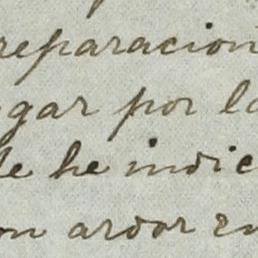 reparacion
gar por la
le he indic
on ardor en